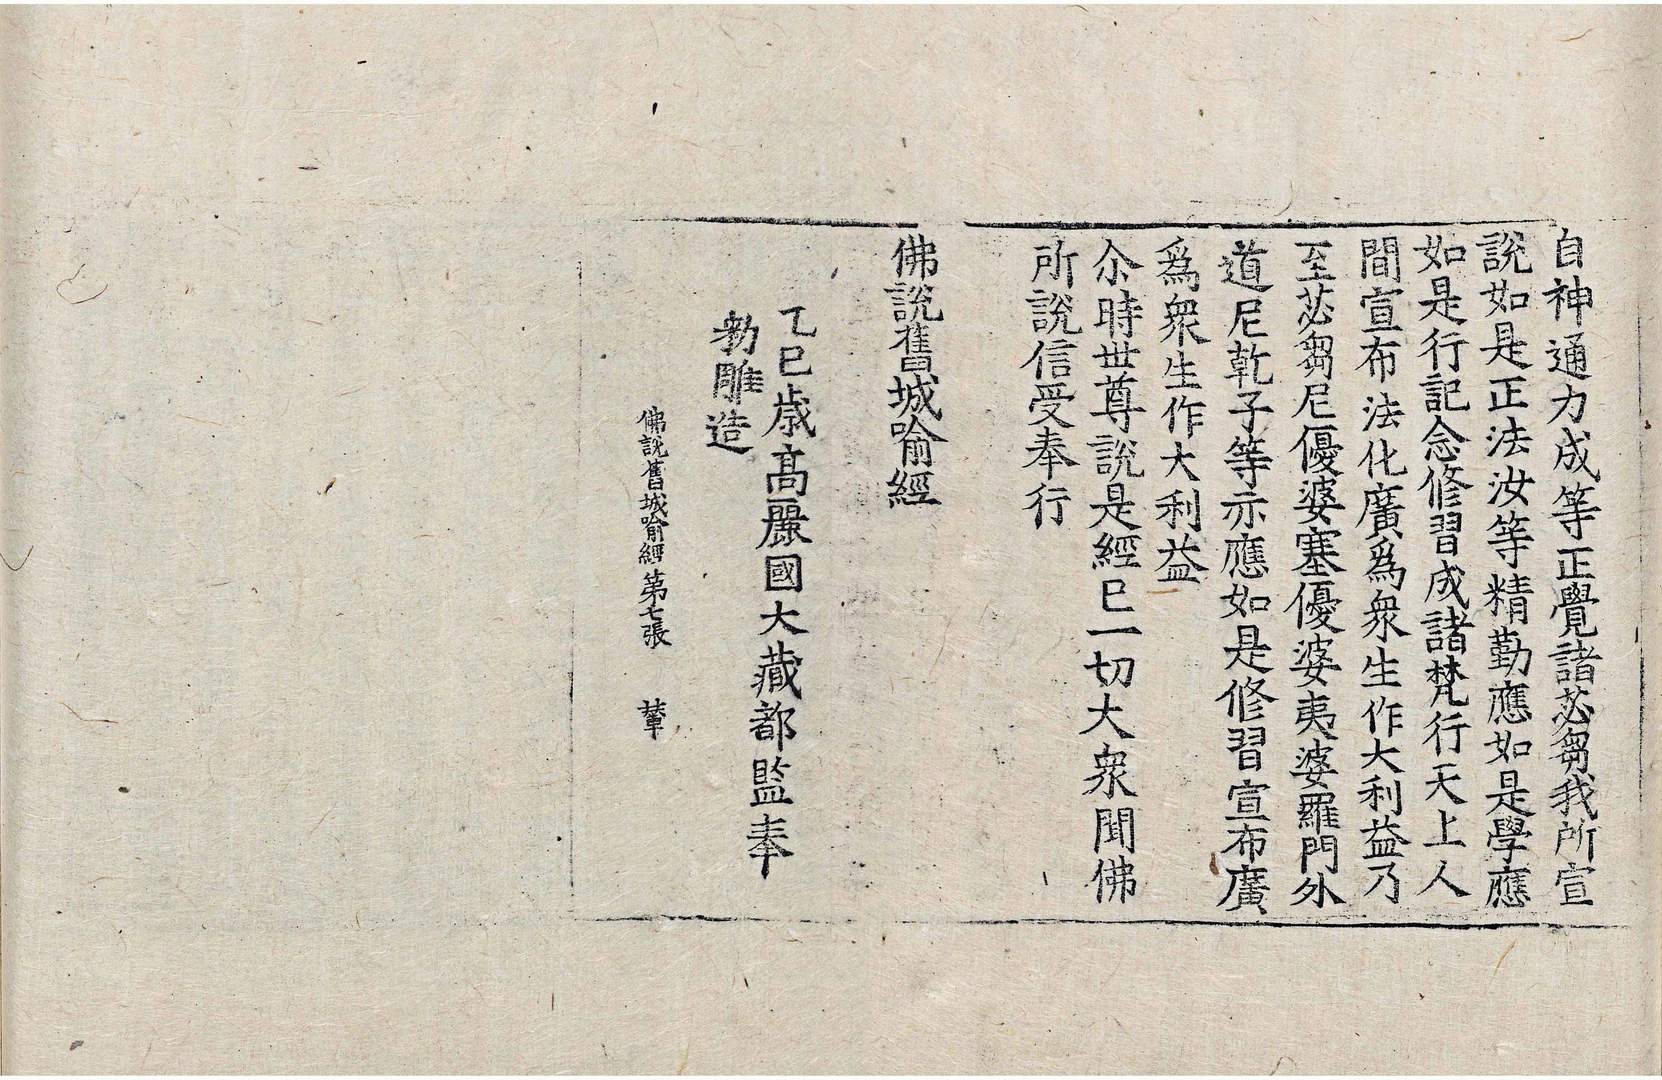 自神通力成等正覺諸苾芻我所宣
說如是正法汝等精勤應如是學應
如是行記念修習成諸梵行天上人
間宣布法化廣爲衆生作大利益乃
至苾芻尼優婆塞優婆夷婆羅門外
道尼乾子等示應如是修習宣布廣
爲衆生作大利益
尒時世尊說是經已一切大衆聞佛
所說信受奉行
佛說舊城喻經
乙巳歲高麗國大藏都監奉
勅雕造
佛說舊城喻經第七張 輦